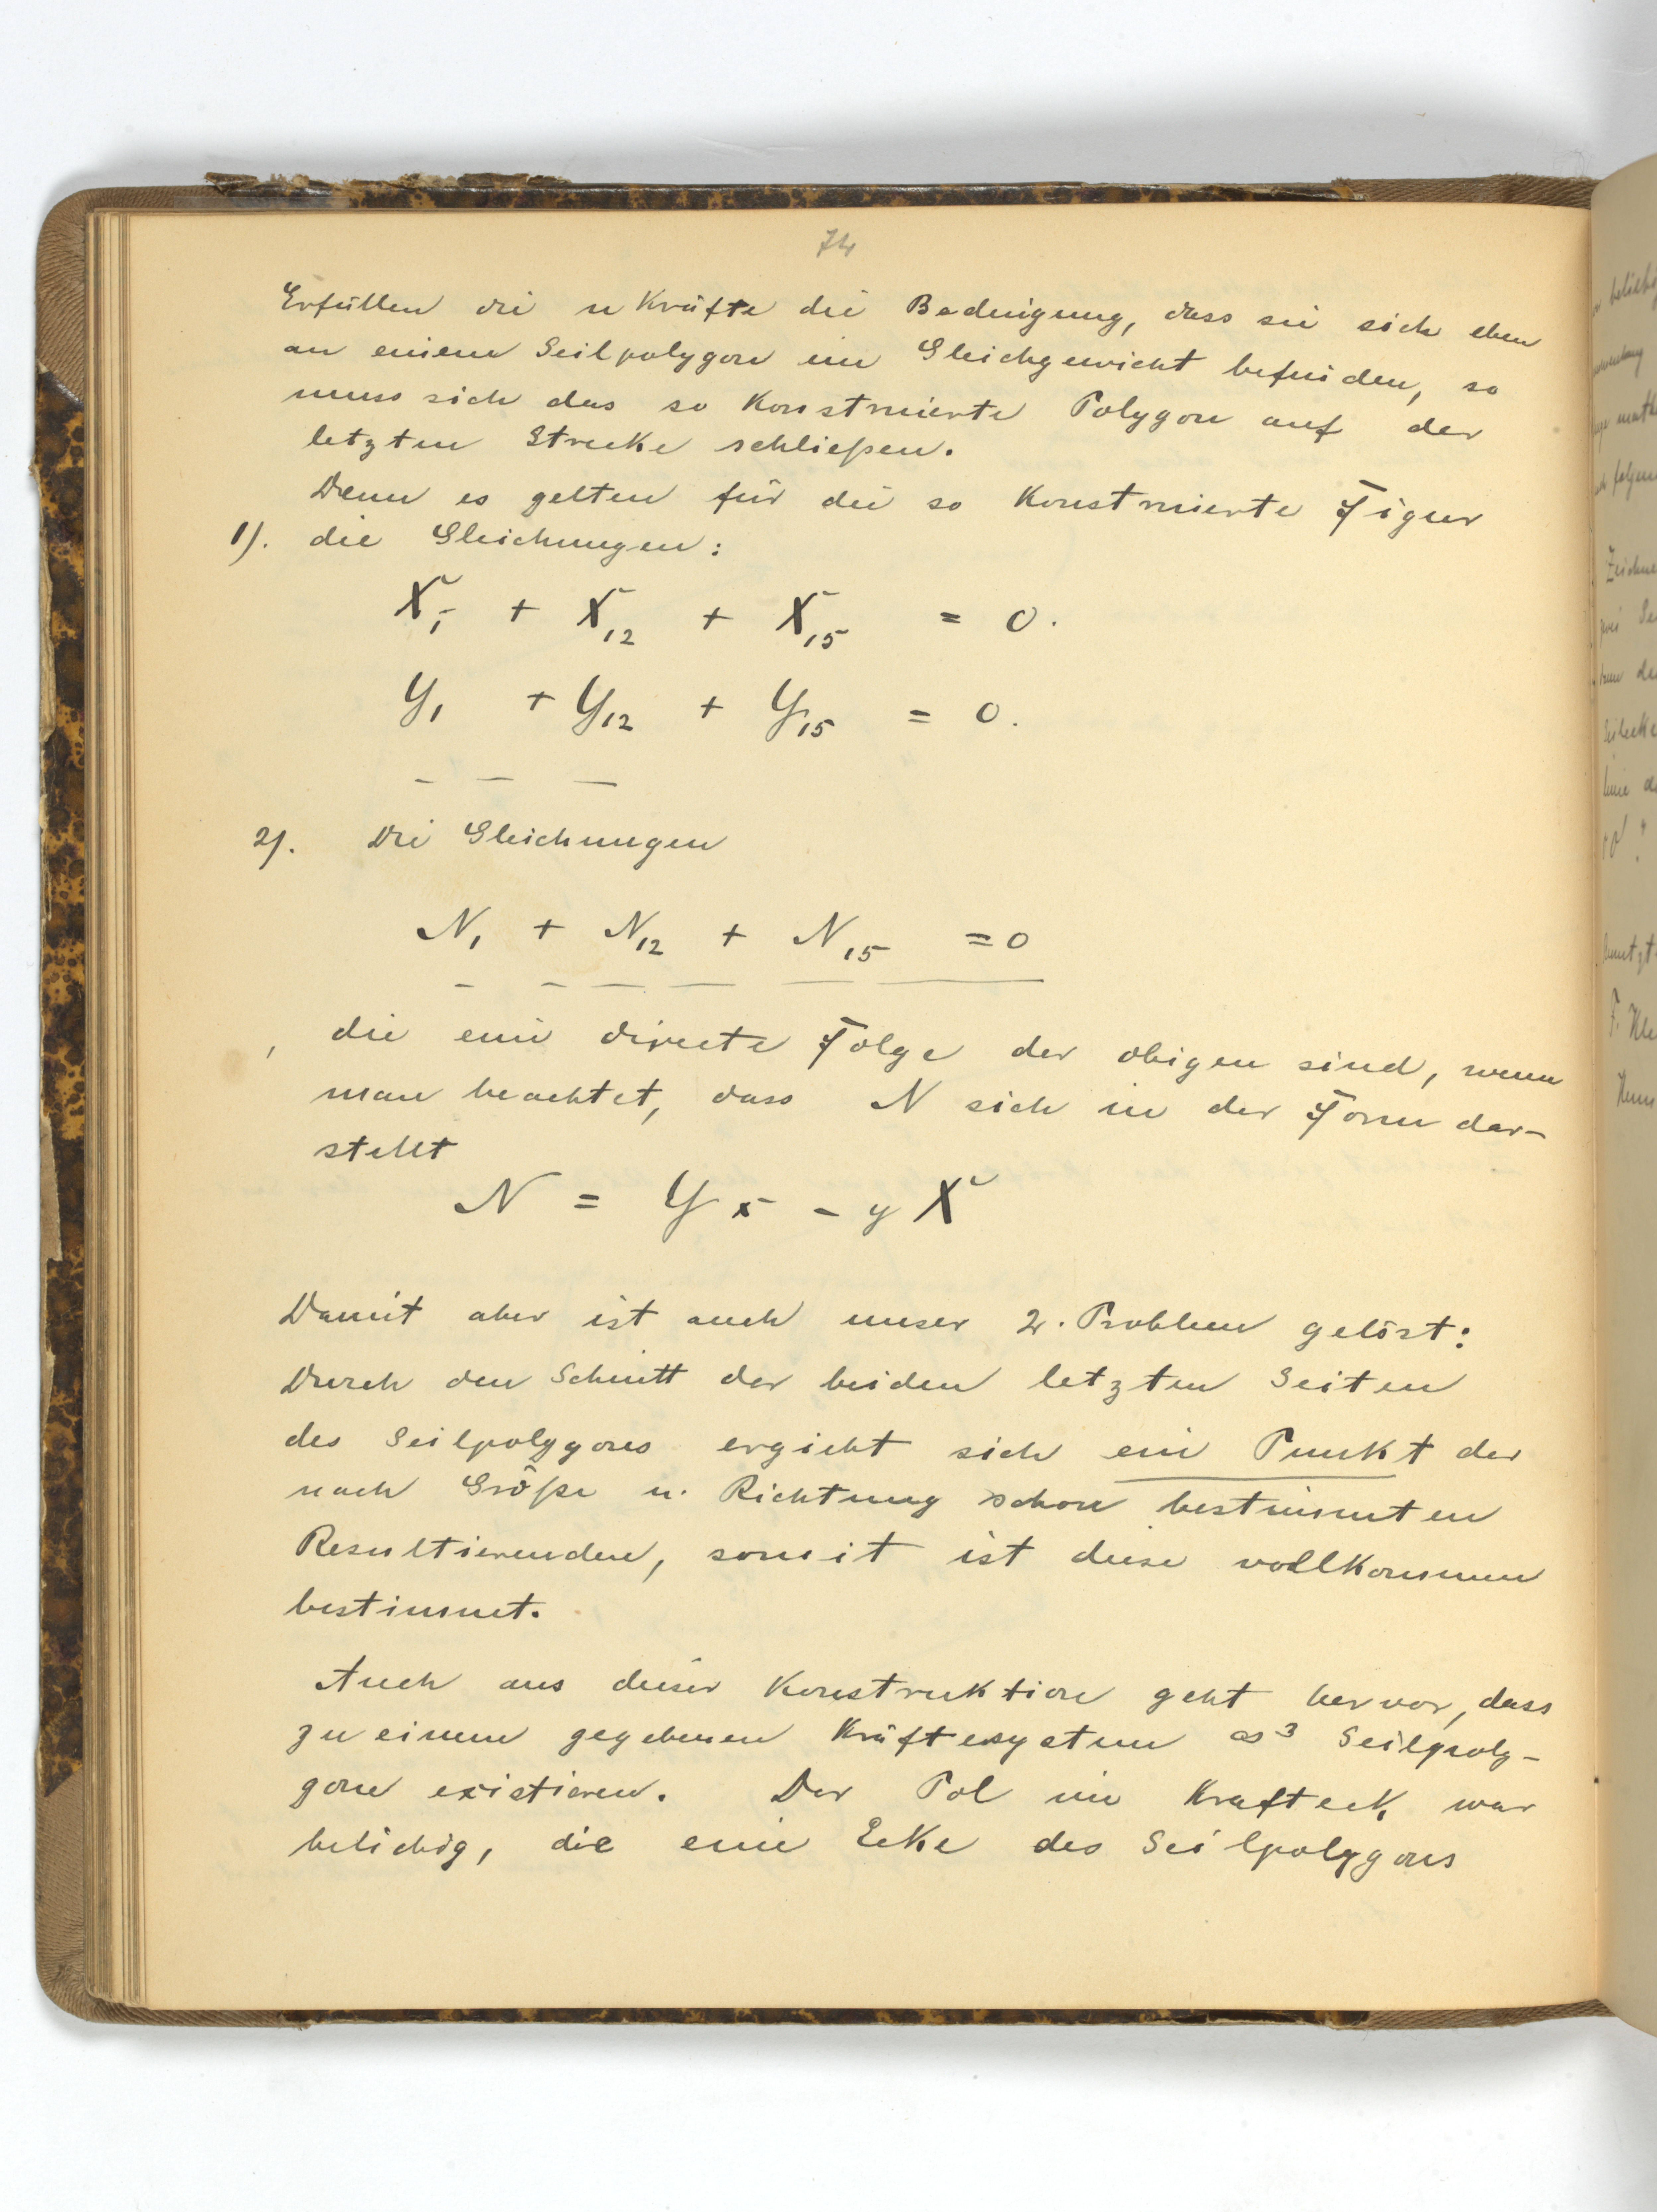 74
Erfüllen die n Kräfte die Bedingung, dass sie sich eben
an einem Seilpolygon im Gleichgewicht befinden, so
muss sich das so Konstruierte Polygon auf der
letzten Strecke schließen.
Denn es gelten für die so Konstruierte Figur
1). die Gleichungen:
X₁ + X₁₂ + X₁₅ = 0.
Y₁ + Y₁₂ + Y₁₅ = 0.
— — —
2). Die Gleichungen
N₁ + N₁₂ + N₁₅ = 0
— — — — — —
die eine directe Folge der obigen sind, wenn
man beachtet, dass N sich in der Form dar-
stellt
N = Y x - y X
Damit aber ist auch unser 2. Problem gelöst:
Durch den Schnitt der beiden letzten Seiten
des Seilpolygons ergiebt sich ein Punkt der
nach Größe u. Richtung schon bestimmten
Resultierenden, somit ist diese vollKommen
bestimmt.
Auch aus dieser Konstruktion geht hervor, dass
zu einem gegebenen Kräftesystem ∞³ Seilpoly-
gone existieren. Der Pol im Krafteck war
beliebig, die eine Ecke des Seilpolygons